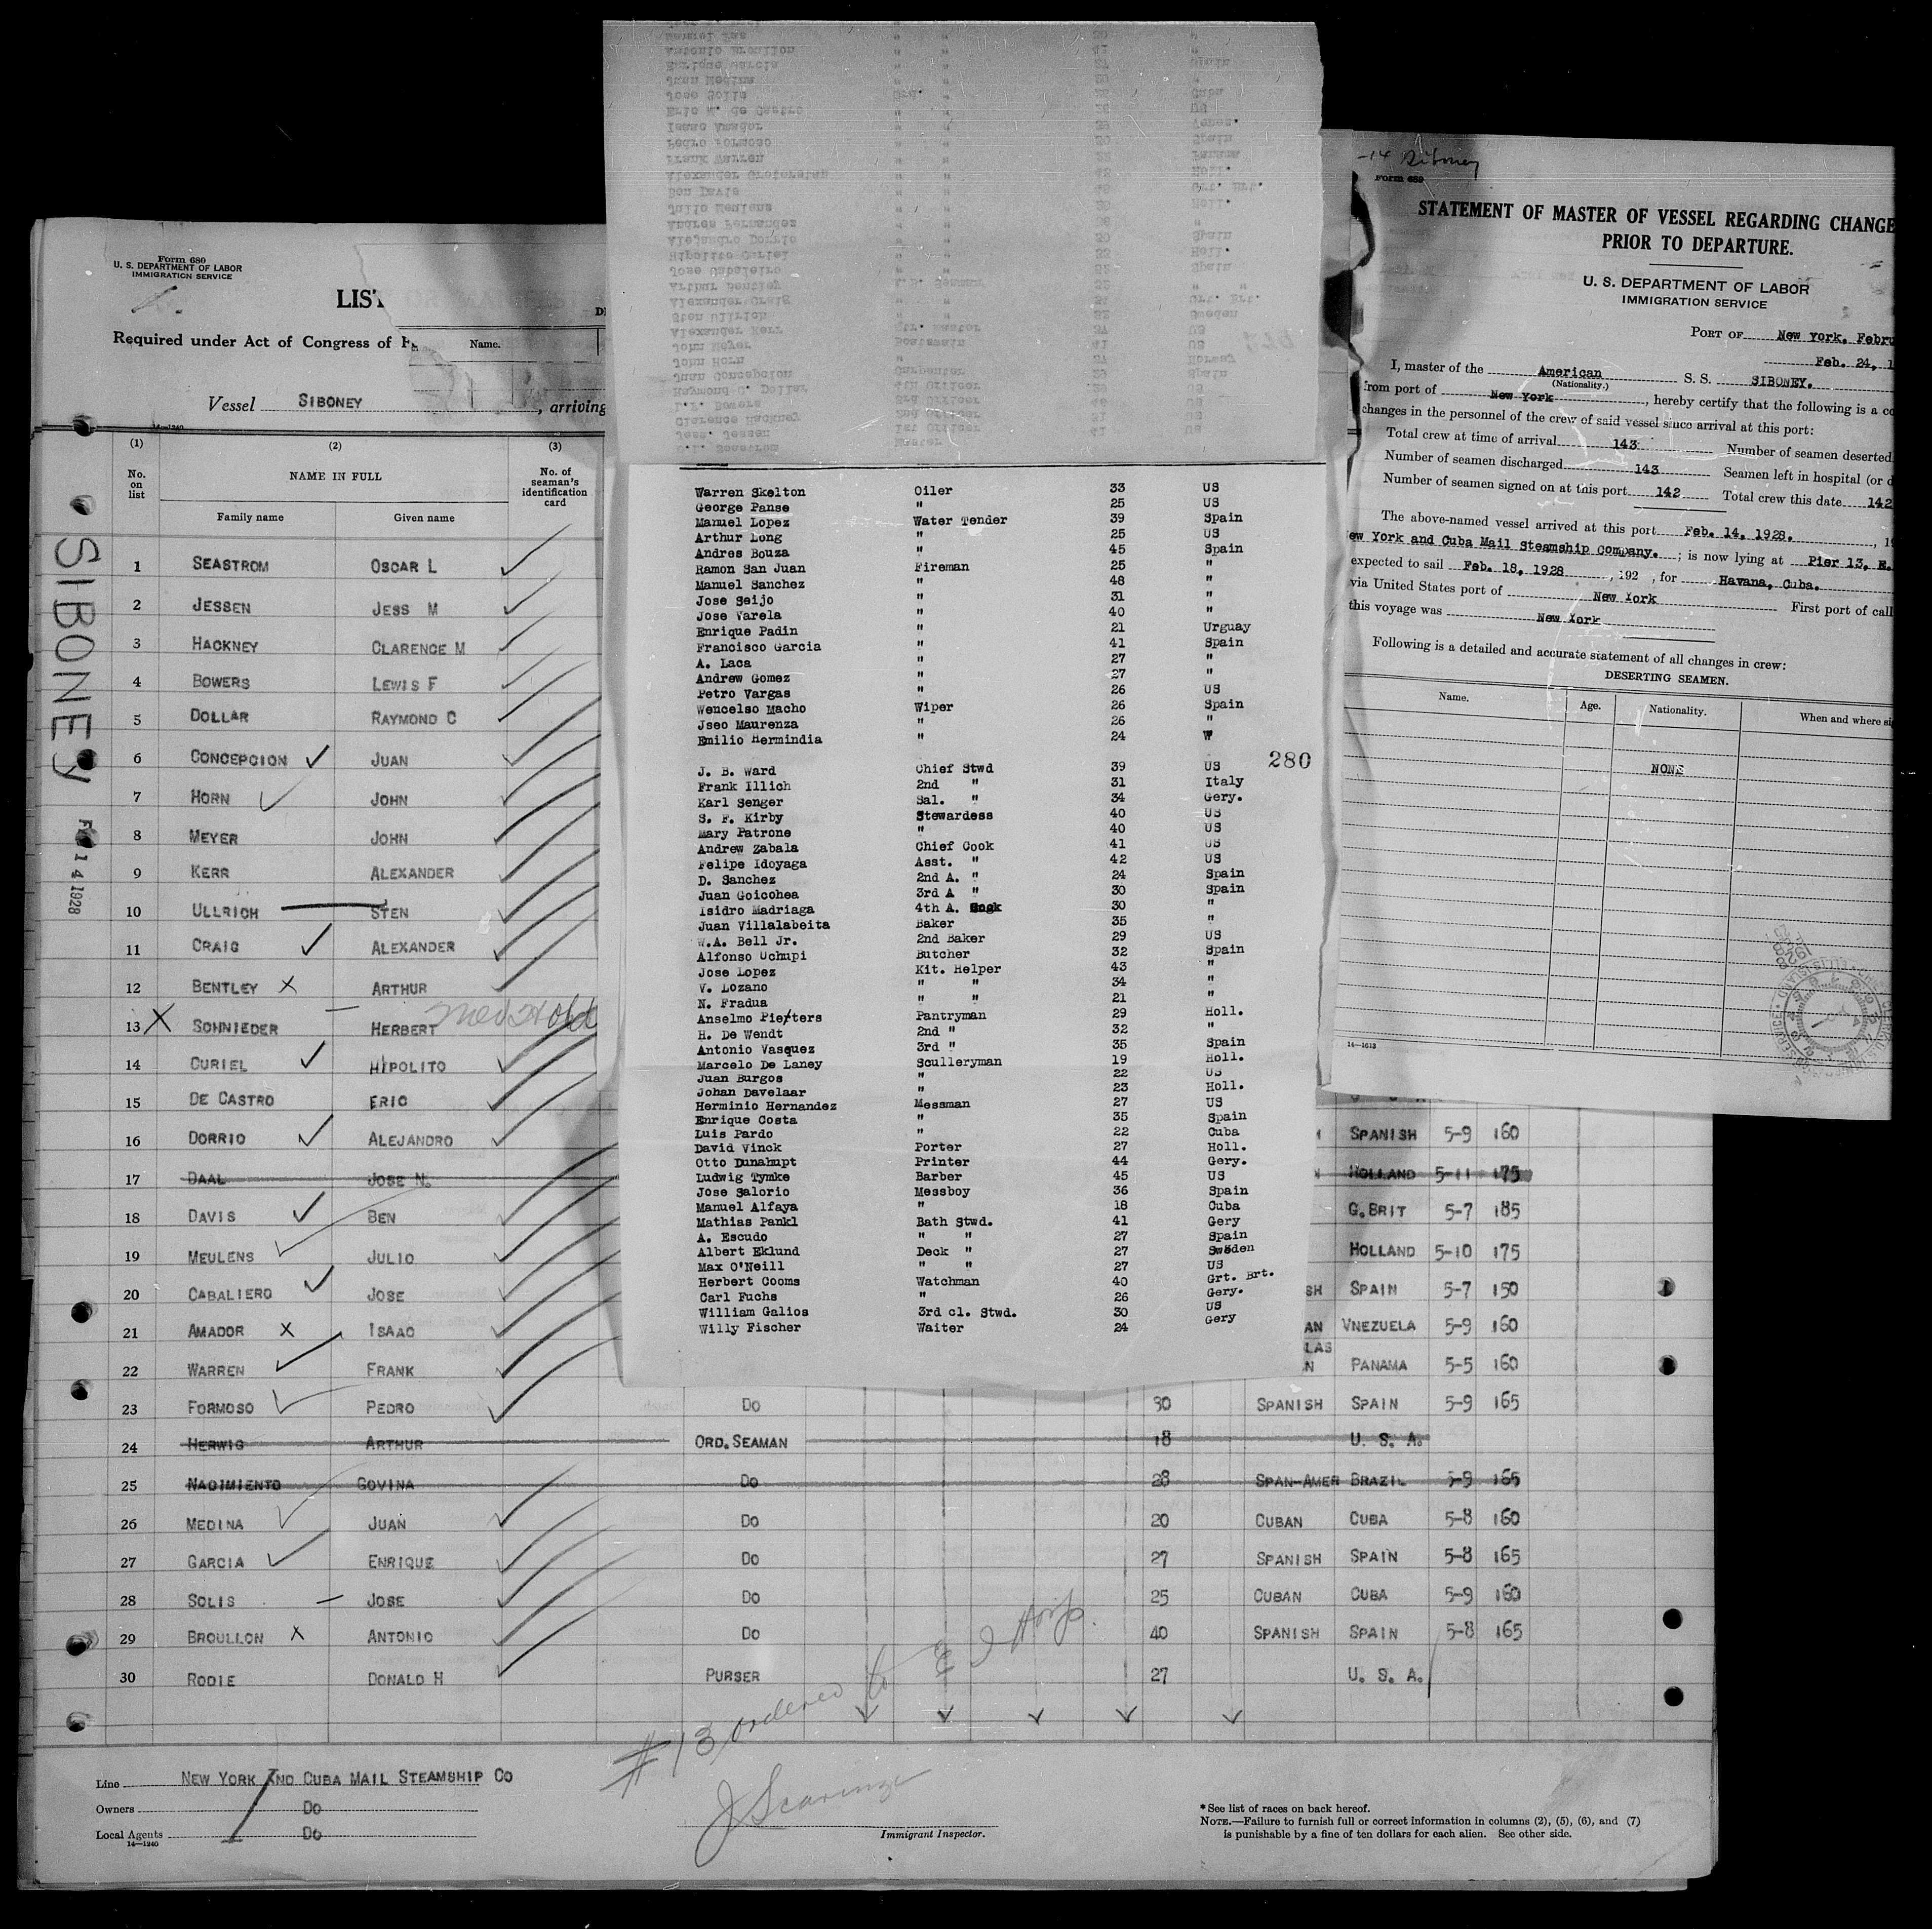 Form 680
U. S. DEPARTMENT OF LABOR
IMMIGRATION SERVICE
LIST
Required under Act of Congress of
Name.
Vessel SIBONEY , arriving
14-1240
(1) (2) (3)
No. on list NAME IN FULL No. of seaman's identification card
Family name Given name
SIBONEY
14 1928
1 SEASTROM OSCAR L
2 JESSEN JESS M
3 HACKNEY CLARENCE M
4 BOWERS LEWIS F
5 DOLLAR RAYMOND C
6 CONCEPCION JUAN
7 HORN JOHN
8 MEYER JOHN
9 KERR ALEXANDER
10 ULLRICH STEN
11 CRAIG ALEXANDER
12 BENTLEY X ARTHUR
Med Hold
13 X SCHNIEDER HERBERT
14 CURIEL HIPOLITO
15 DE CASTRO ERIC
16 DORRIO ALEJANDRO SPANISH 5-9 160
17 DAAL JOSE N. HOLLAND 5-11 175
18 DAVIS BEN G. BRIT 5-7 185
19 MEULENS JULIO HOLLAND 5-10 175
20 CABALIERO JOSE SH SPAIN 5-7 150
21 AMADOR X ISAAC AN VNEZUELA 5-9 160
LAS
22 WARREN FRANK N PANAMA 5-5 160
23 FORMOSO PEDRO DO 30 SPANISH SPAIN 5-9 165
24 HERWIG ARTHUR ORD. SEAMAN 18 U. S. A.
25 NACIMIENTO GOVINA DO 28 SPAN-AMER BRAZIL 5-9 165
26 MEDINA JUAN DO 20 CUBAN CUBA 5-8 160
27 GARCIA ENRIQUE DO 27 SPANISH SPAIN 5-8 165
28 SOLIS JOSE DO 25 CUBAN CUBA 5-9 160
29 BROULLON X ANTONIO DO 40 SPANISH SPAIN 5-8 165
30 RODIE DONALD H PURSER 27 U. S. A.
#13 ordered to E I Hosp.
Line NEW YORK AND CUBA MAIL STEAMSHIP CO
Owners DO
Local Agents DO
14-1240
Immigrant Inspector.
* See list of races on back hereof.
NOTE.—Failure to furnish full or correct information in columns (2), (5), (6), and (7)
is punishable by a fine of ten dollars for each alien. See other side.
Manuel
Antonio Broullon " " 41 "
Enrique Garcia " " 27 Spain
Juan Medina " " 20 "
Jose Solis Ord. " 25 Cuba
Eric M. de Castro " " US
Isaac Amador " " Venez.
Pedro Formoso " " 30 Spain
Frank Warren " " Panama
Alexander " " Holl.
Ben Davis " " Grt. Brt.
Julio Meulens " " Holl.
Andres Fernandez " " "
Alejandro Dorrio " " Spain
Hipolito Curiel " " Holl.
Jose Cabaleiro " " Spain
Arthur Bentley A.B. Seaman " "
Alexander Craig " " Grt. Brt.
Sten Ullrich " " Sweden
Alexander Kerr Qtr. Master 37 US
John Meyer Boatswain 41 US
John Horn " 27 Norway
Juan Concepcion Carpenter Spain
Raymond C. Dollar 4th Officer US
L.F. Bowers 3rd Officer US
Clarence Hackney 2nd Officer US
Jess. Jessen 1st Officer 41 US
Seastrom Master
Warren Skelton Oiler 33 US
George Panse " 25 US
Manuel Lopez Water Tender 39 Spain
Arthur Long " 25 US
Andres Bouza " 45 Spain
Ramon San Juan Fireman 25 "
Manuel Sanchez " 48 "
Jose Seijo " 31 "
Jose Varela " 40 "
Enrique Padin " 21 Urguay
Francisco Garcia " 41 Spain
A. Laca " 27 "
Andrew Gomez " 27 "
Petro Vargas " 26 US
Wencelso Macho Wiper 26 Spain
Jseo Maurenza " 26 "
Emilio Hermindia " 24 W
280
J. B. Ward Chief Stwd 39 US
Frank Illich 2nd " 31 Italy
Karl Senger Sal. " 34 Gery.
S. F. Kirby Stewardess 40 US
Mary Patrone " 40 US
Andrew Zabala Chief Cook 41 US
Felipe Idoyaga Asst. " 42 US
D. Sanchez 2nd A. " 24 Spain
Juan Goicohea 3rd A " 30 Spain
Isidro Madriaga 4th A. Cook 30 "
Juan Villalabeita Baker 35 "
W.A. Bell Jr. 2nd Baker 29 US
Alfonso Uchupi Butcher 32 Spain
Jose Lopez Kit. Helper 43 "
V. Lozano " " 34 "
N. Fradua " " 21 "
Anselmo Pieters Pantryman 29 Holl.
H. De Wendt 2nd " 32 "
Antonio Vasquez 3rd " 35 Spain
Marcelo De Laney Sculleryman 19 Holl.
Juan Burgos " 22 US
Johan Davelaar " 23 Holl.
Herminio Hernandez Messman 27 US
Enrique Costa " 35 Spain
Luis Pardo " 22 Cuba
David Vinck Porter 27 Holl.
Otto Dunahupt Printer 44 Gery.
Ludwig Tymke Barber 45 US
Jose Salorio Messboy 36 Spain
Manuel Alfaya " 18 Cuba
Mathias Pankl Bath Stwd. 41 Gery
A. Escudo " " 27 Spain
Albert Eklund Deck " 27 Sweden
Max O'Neill " " 27 US
Herbert Cooms Watchman 40 Grt. Brt.
Carl Fuchs " 26 Gery.
William Galios 3rd cl. Stwd. 30 US
Willy Fischer Waiter 24 Gery
-14 Siboney
Form 689
STATEMENT OF MASTER OF VESSEL REGARDING CHANGE
PRIOR TO DEPARTURE.
U. S. DEPARTMENT OF LABOR
IMMIGRATION SERVICE
PORT OF New York, Febru
Feb. 24, 1
I, master of the American S. S. SIBONEY.
(Nationality.)
from port of New York , hereby certify that the following is a co
changes in the personnel of the crew of said vessel since arrival at this port:
Total crew at time of arrival 143 Number of seamen deserted
Number of seamen discharged 143 Seamen left in hospital (or d
Number of seamen signed on at this port 142 Total crew this date 142
The above-named vessel arrived at this port Feb. 14, 1928. , 19
ew York and Cuba Mail Steamship Company. ; is now lying at Pier 13, E.
expected to sail Feb. 18, 1928 , 192 , for Havana, Cuba.
via United States port of New York First port of call
this voyage was New York
Following is a detailed and accurate statement of all changes in crew:
DESERTING SEAMEN.
Name. Age. Nationality. When and where si
NONE
14-1613